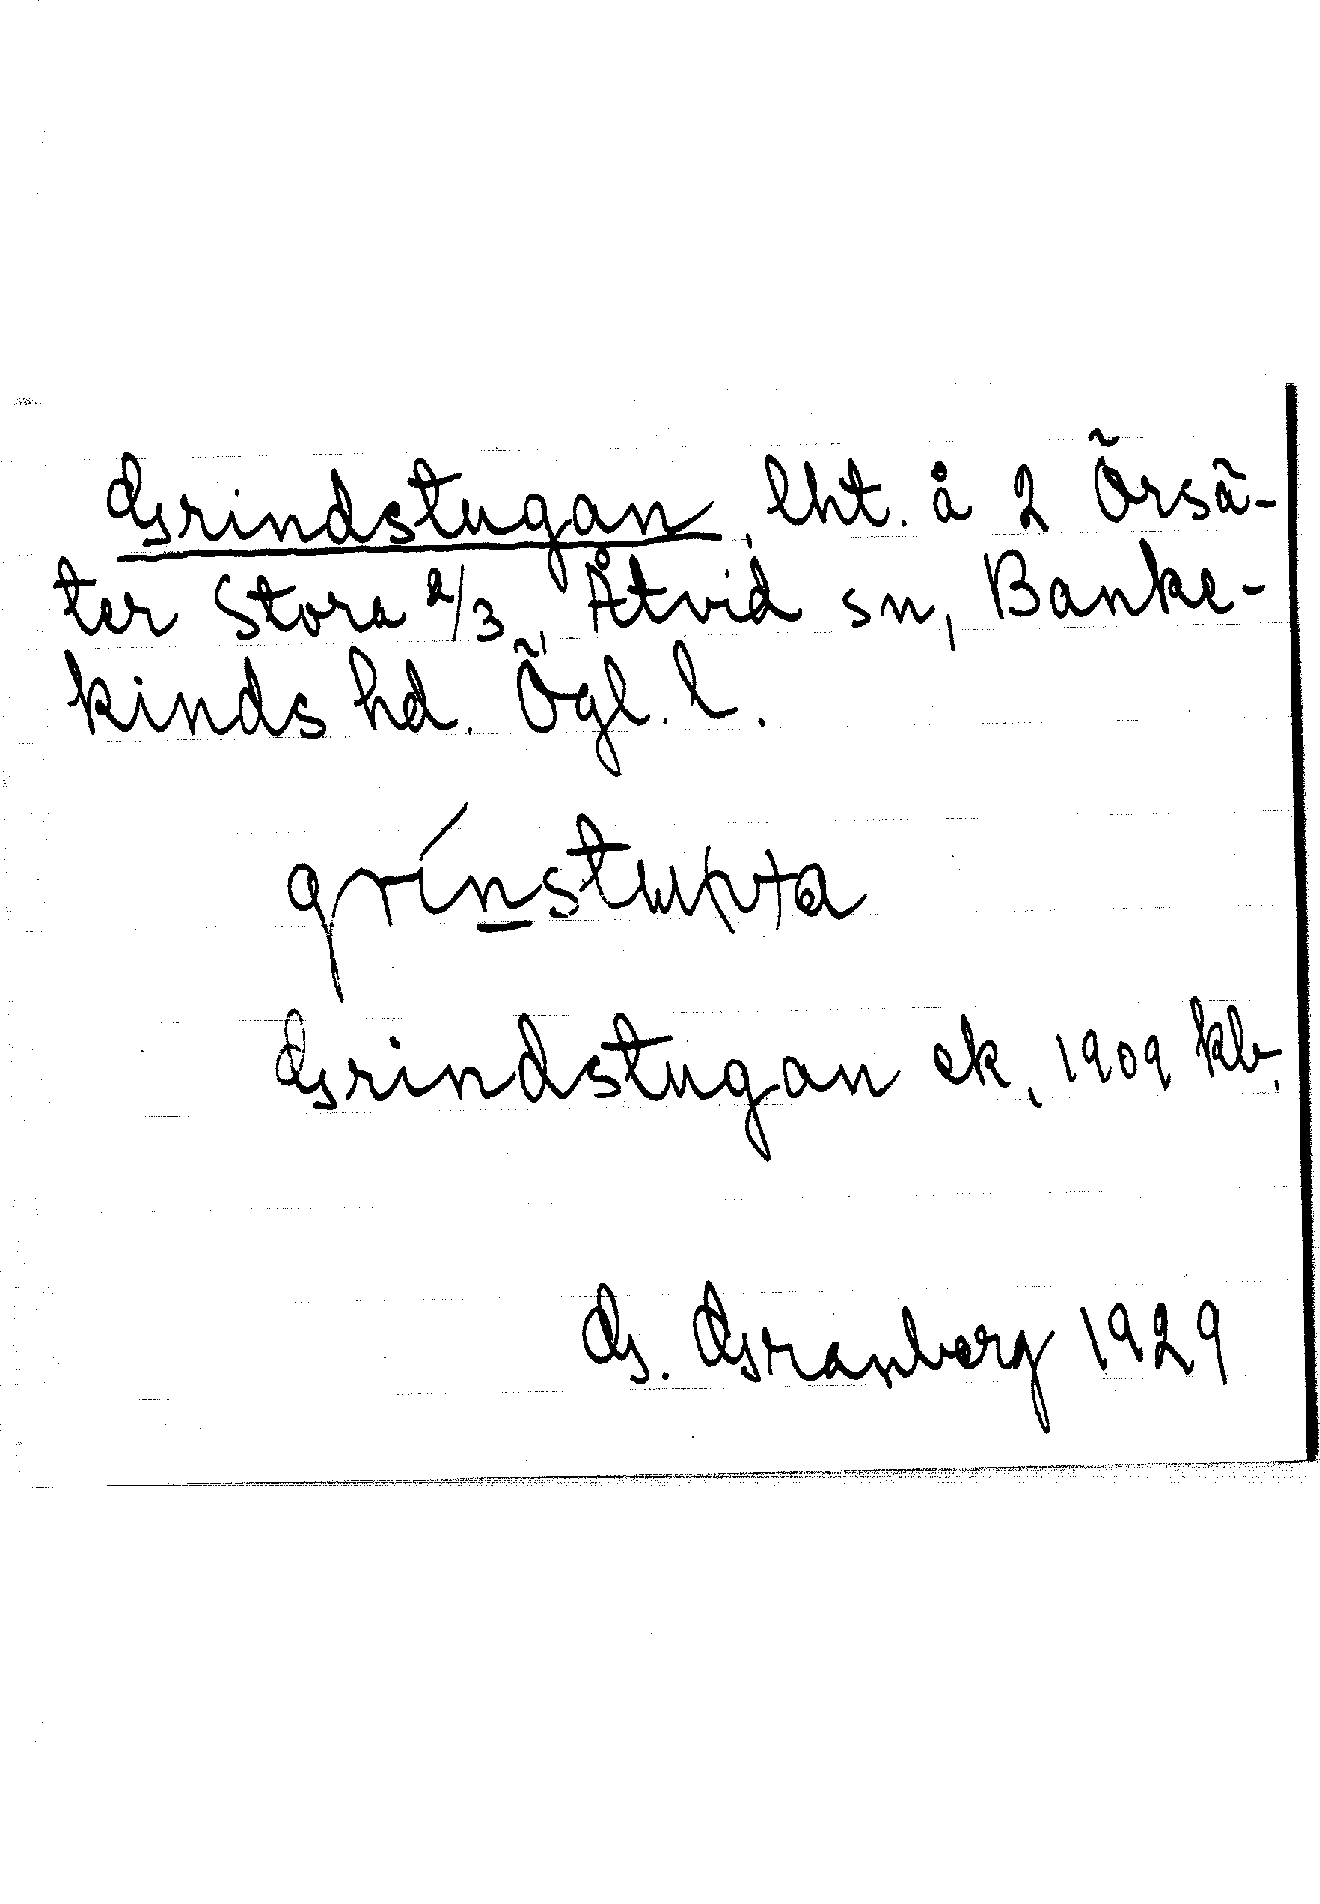 Grindstugan, lht. å 2 Örsä-
ter Stora 2/3, Åtvid sn, Banke-
kinds hd. Ögl. l.
Grindstugan ek, 1909 kb.
G. Granberg 1929